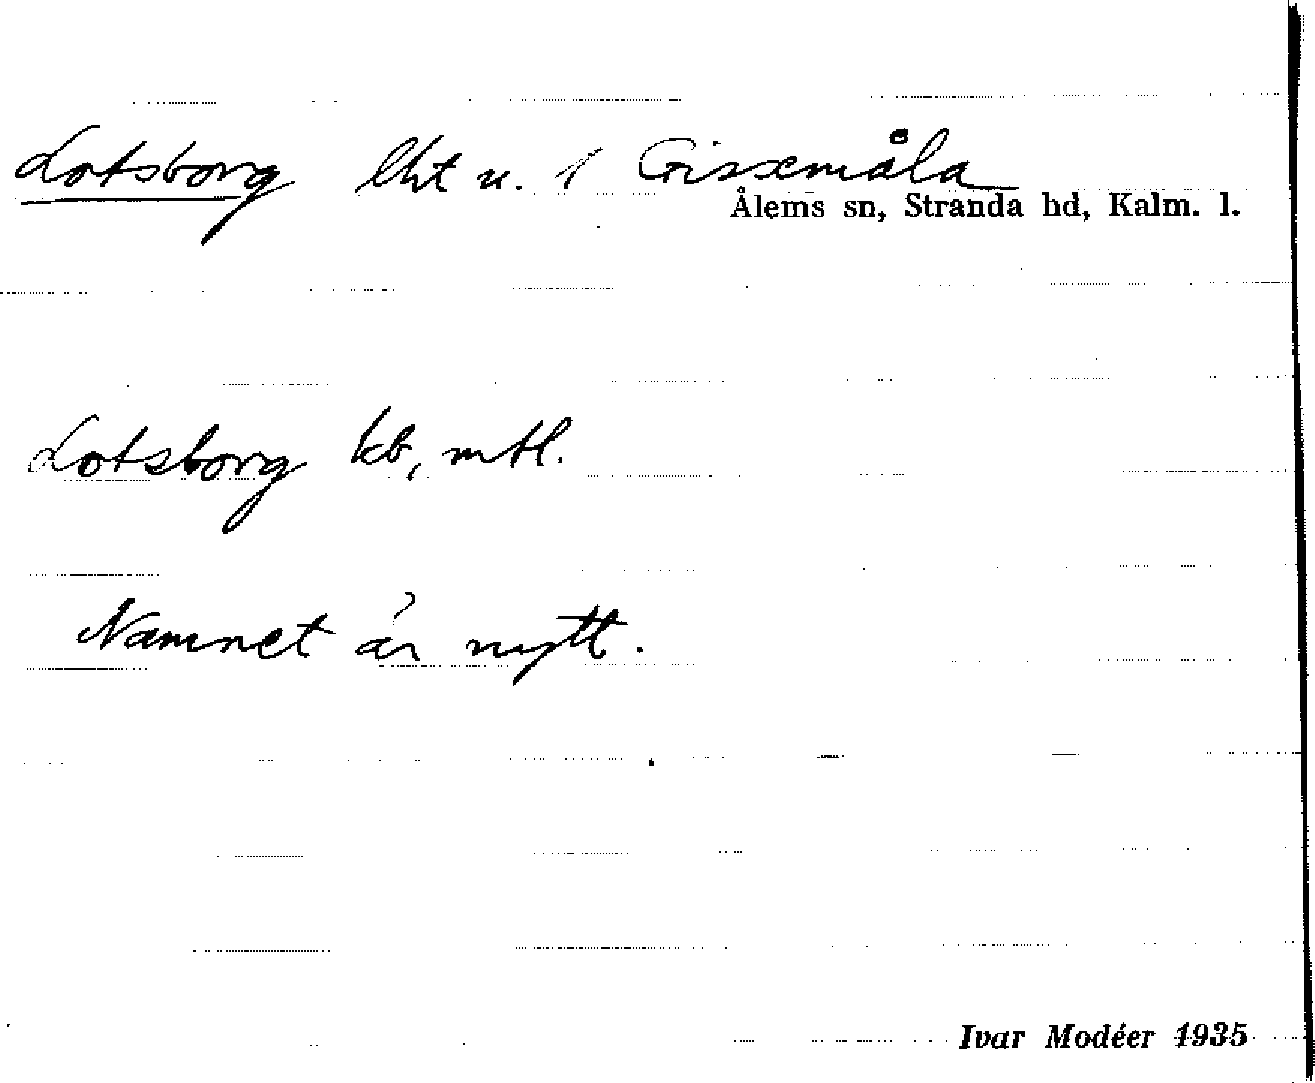 Lotsborg lht u. 1 Gissemåla
Ålems sn, Stranda hd, Kalm. l.
Lotsborg kb, mtl.
Namnet är nytt.
Ivar Modéer 1935